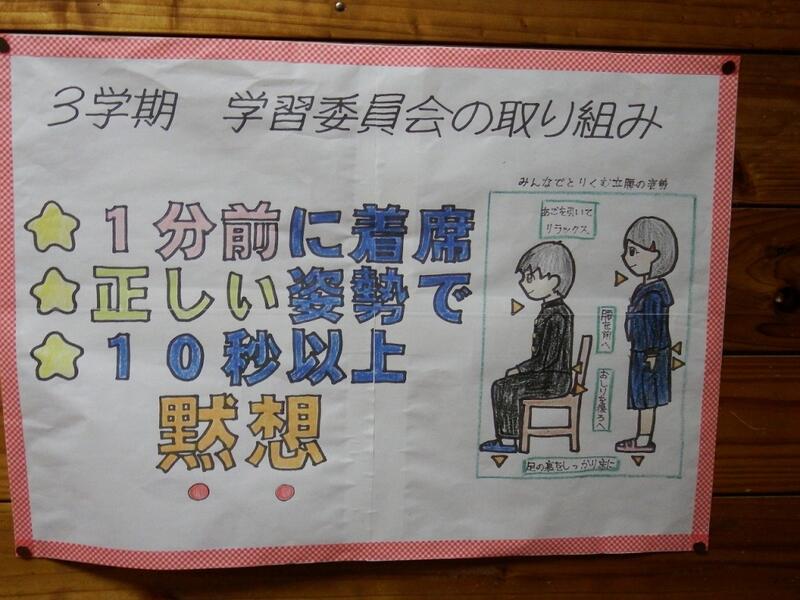 3学期 学習委員会の取り組み
みんなでとりくむ立腰の姿勢
★1分前に着席
★正しい姿勢で
★10秒以上
黙想
あごを引いて
リラックス
腰を前へ
おしりを後ろへ
足の裏をしっかり床に